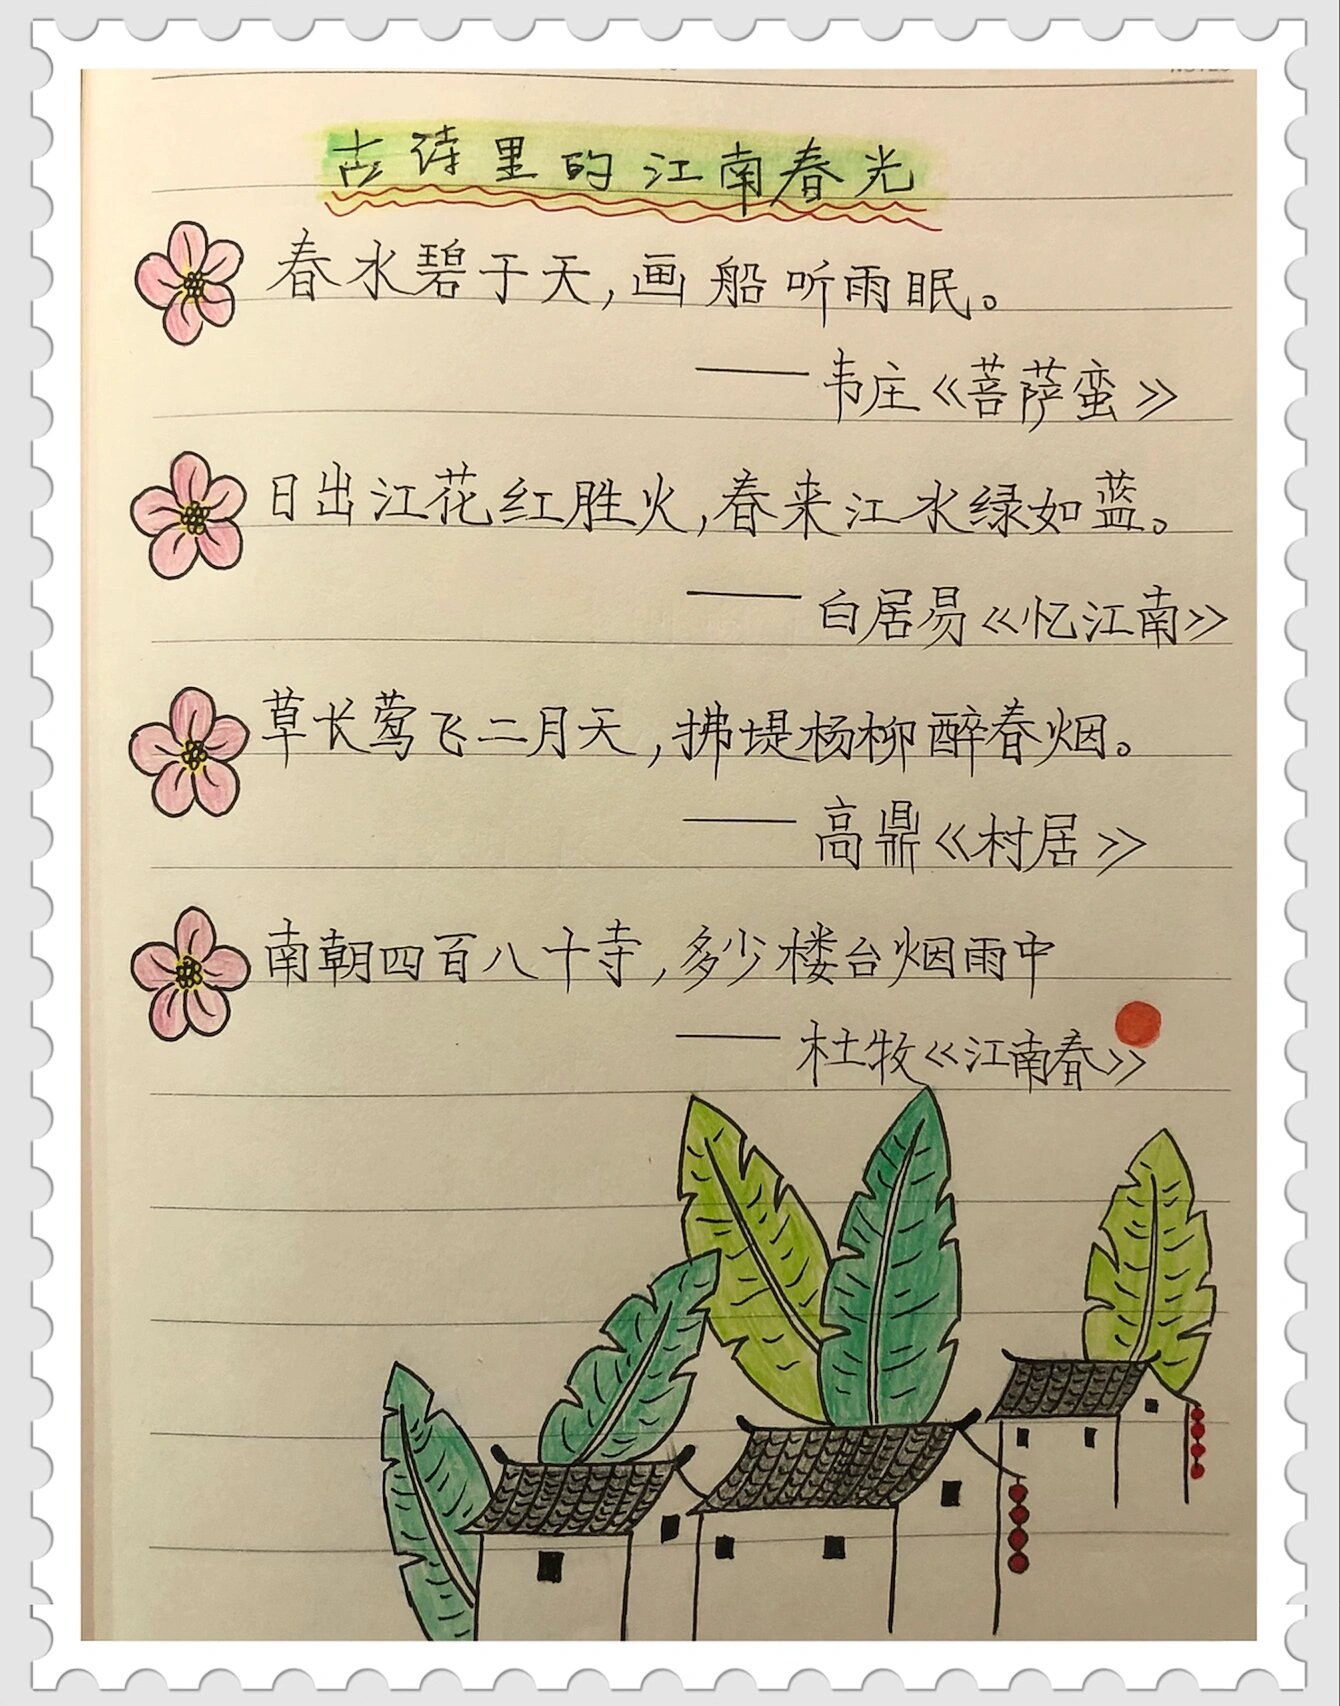 古诗里的江南春光
春水碧于天,画船听雨眠。
——韦庄《菩萨蛮》
日出江花红胜火,春来江水绿如蓝。
——白居易《忆江南》
草长莺飞二月天,拂堤杨柳醉春烟。
——高鼎《村居》
南朝四百八十寺,多少楼台烟雨中
——杜牧《江南春》